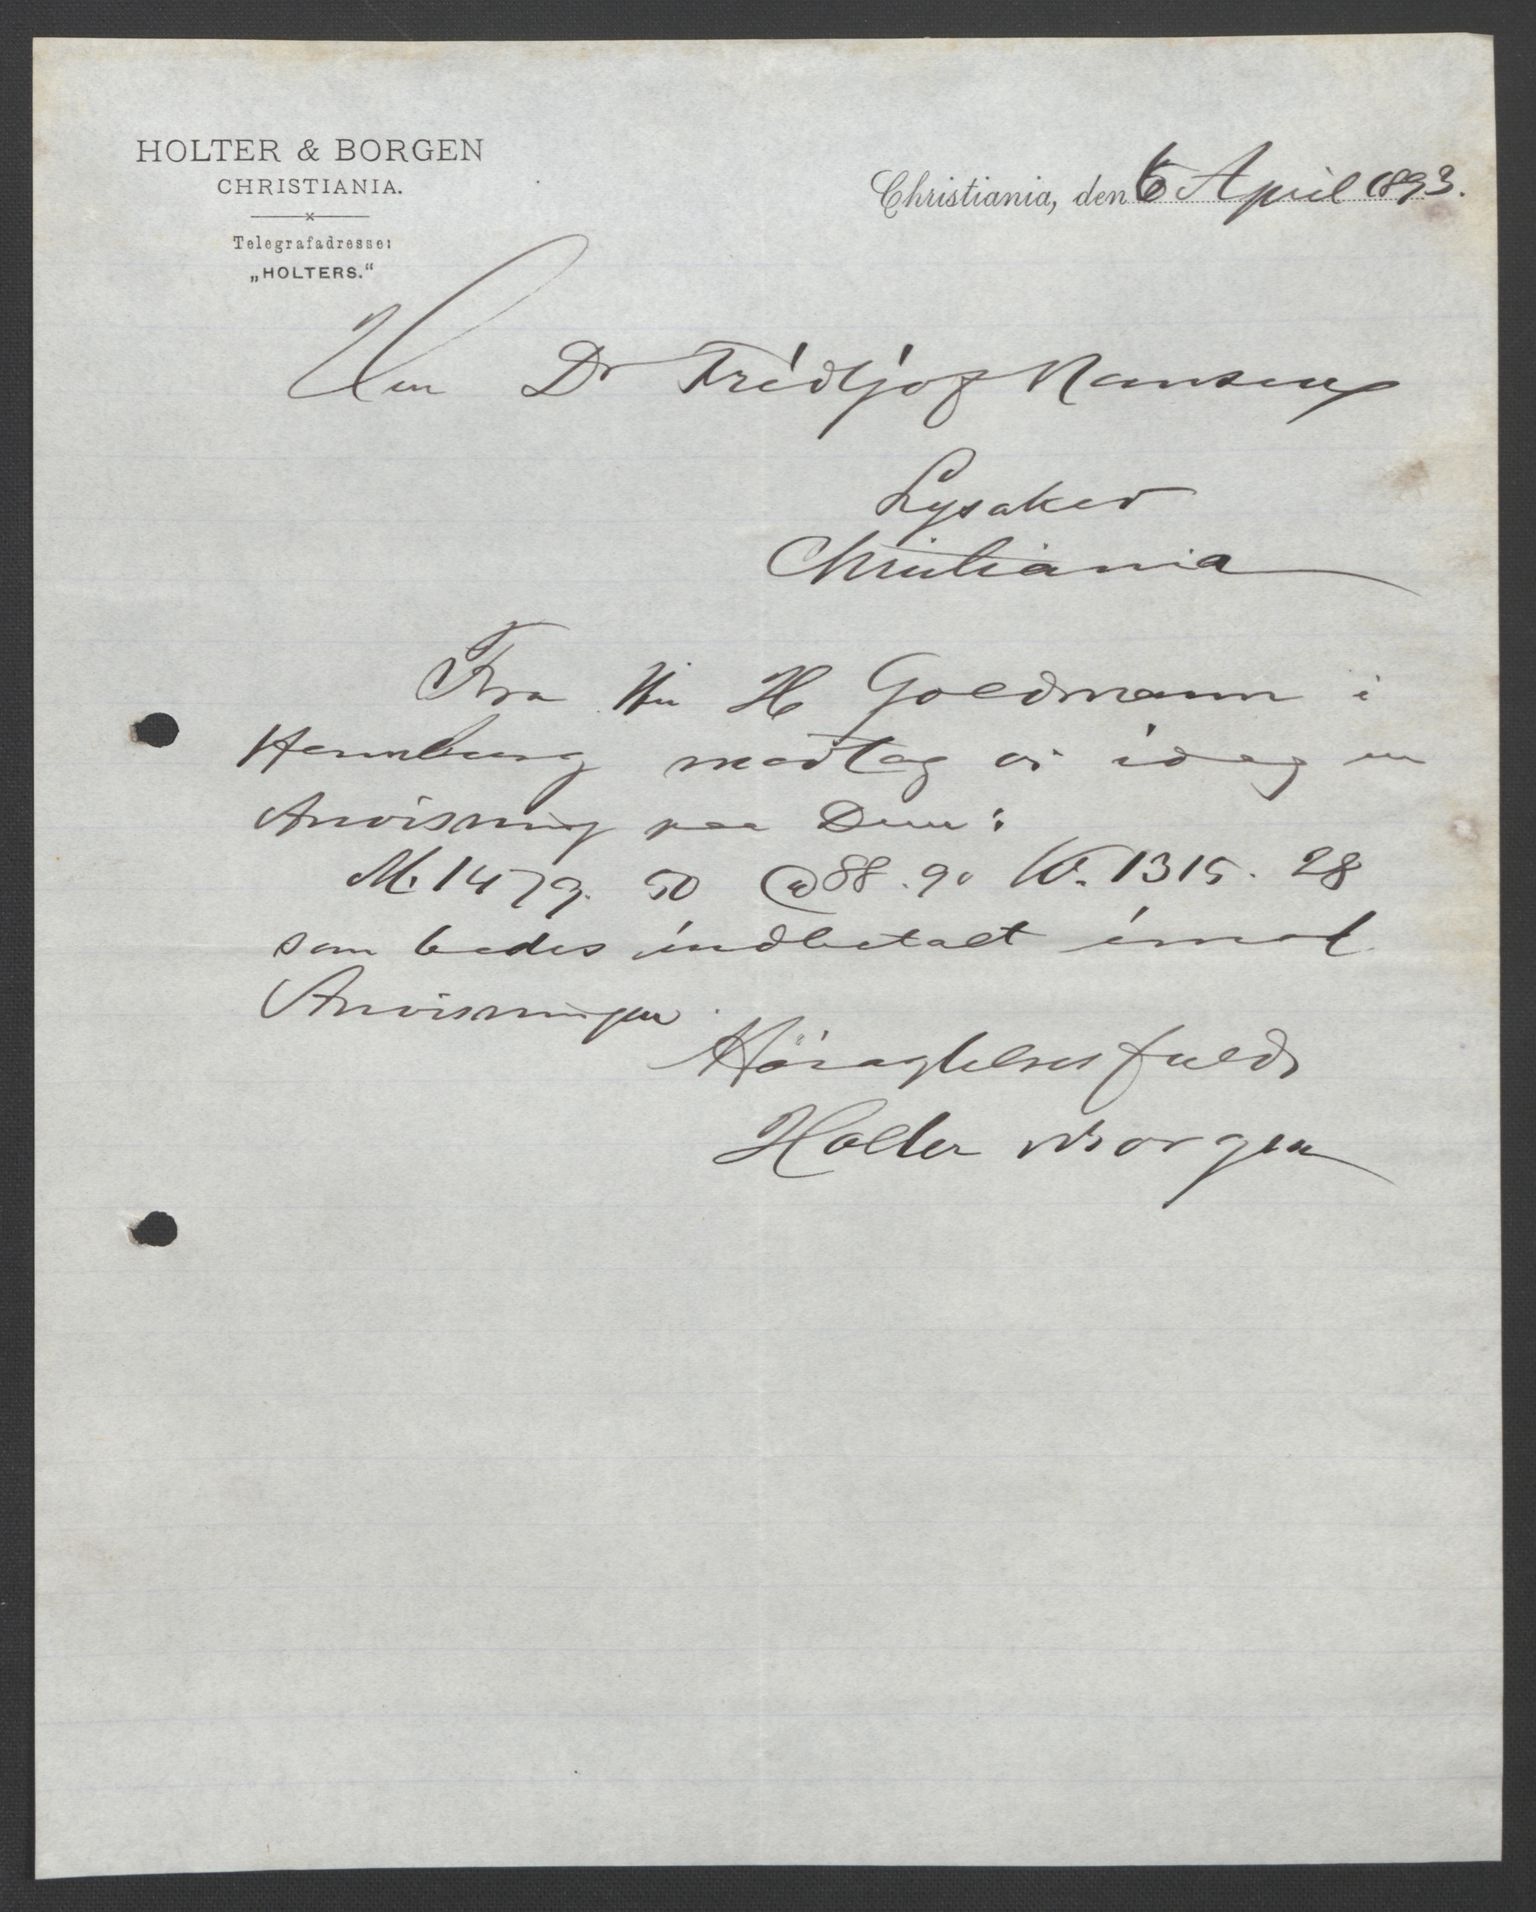 HOLTER & BORGEN
CHRISTIANIA.
Telegrafadresse:
„HOLTERS.“
Christiania, den 6 April 1893.
Herr Dr Fridtjof Nansen
Lysaker
Christiania
Fra Hr H Goldmann i
Hamburg modtog vi idag en
Anvisning paa Dem:
M. 1479. 50 @ 88.90 Kr. 1315. 28
som bedes indbetalt imod
Anvisningen.
Höiagtelsesfuldt
Holter & Borgen